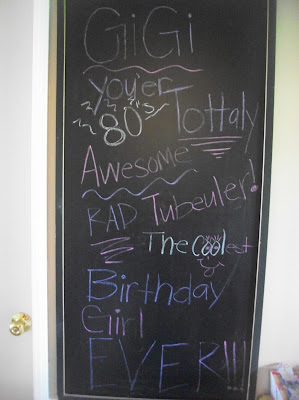 GiGi
you'er
80's Tottaly
Awesome
RAD Tubeuler!
The Coolest
Birthday
Girl
EVER!!!